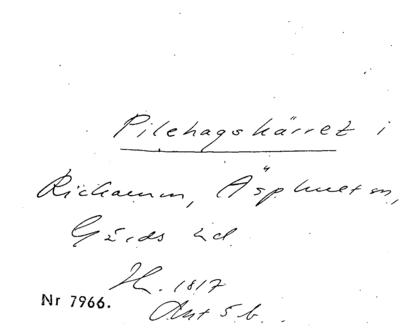 Pilehagskärret i
Rickarum, Äsphult sn,
Gärds hd.
H. 1817
Ant 5 b.
Nr 7966.